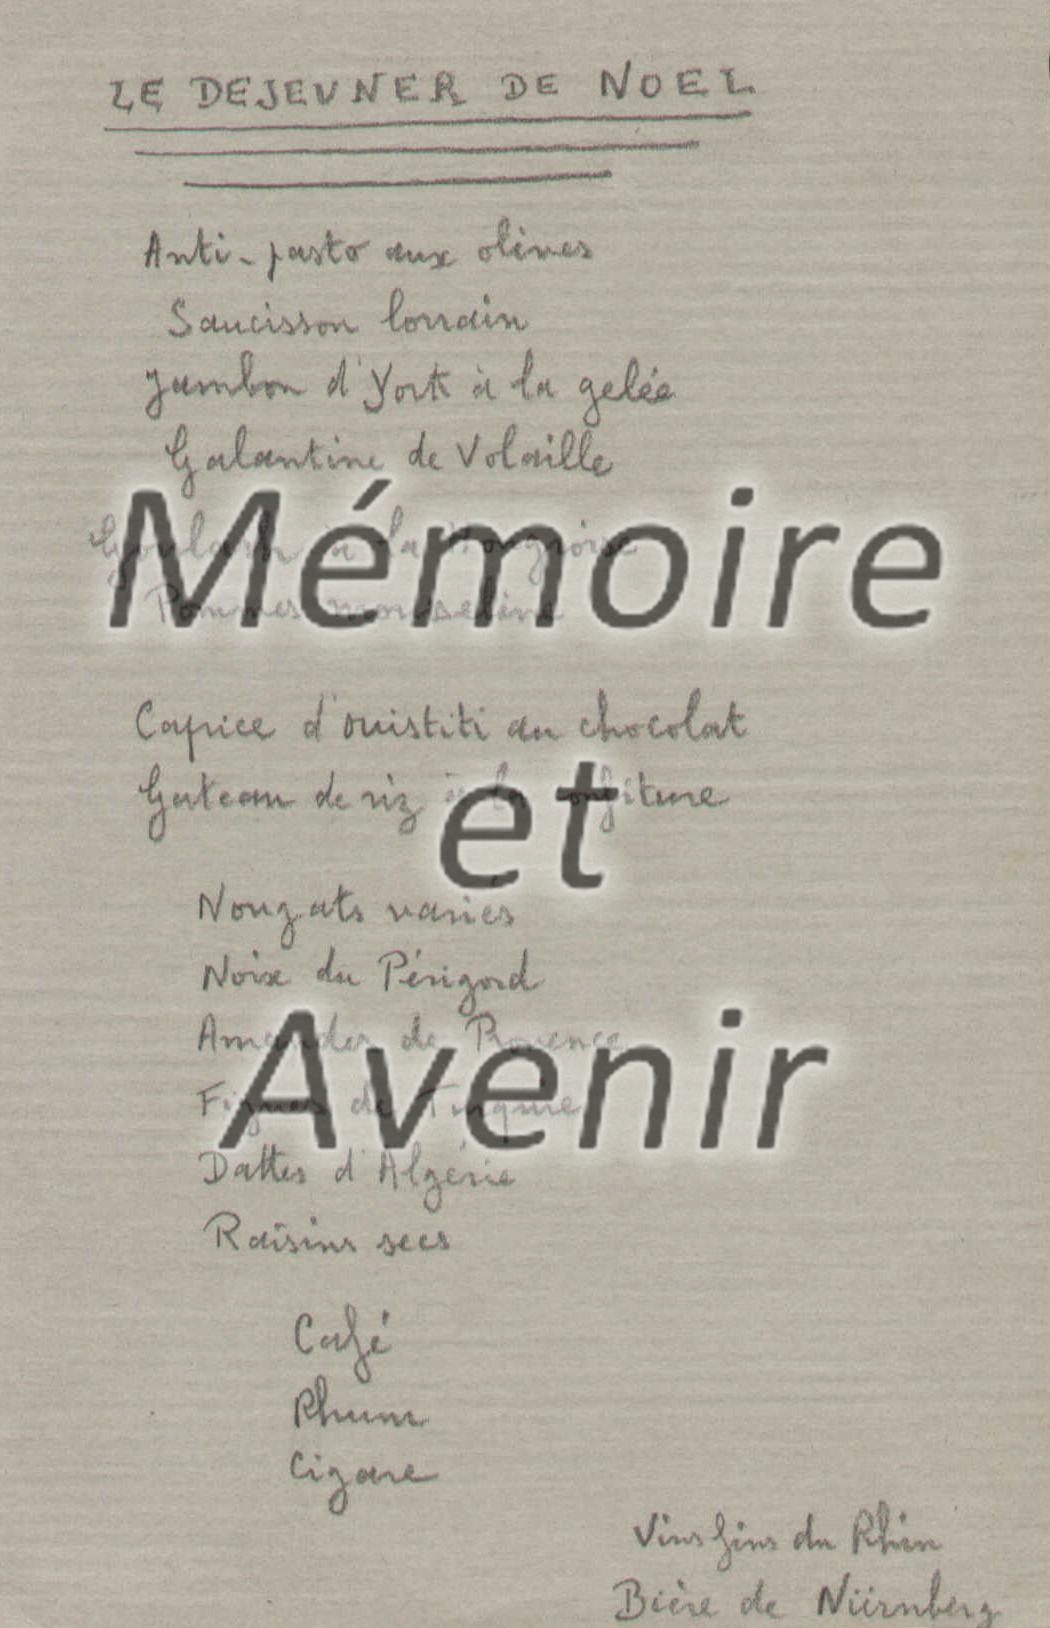 LE DEJEUNER DE NOEL
Anti-pasto aux olives
Saucisson lorrain
Jambon d'York à la gelée
Galantine de Volaille
Goulash à la Hongroise
Pommes mousseline
Mémoire
Caprice d'ouistiti au chocolat
Gateau de riz à la confiture
et
Nougats variés
Noix du Périgord
Amandes de Provence
Figues de Turquie
Avenir
Dattes d'Algérie
Raisins secs
Café
Rhum
Cigare
Vins fins du Rhin
Bière de Nürnberg